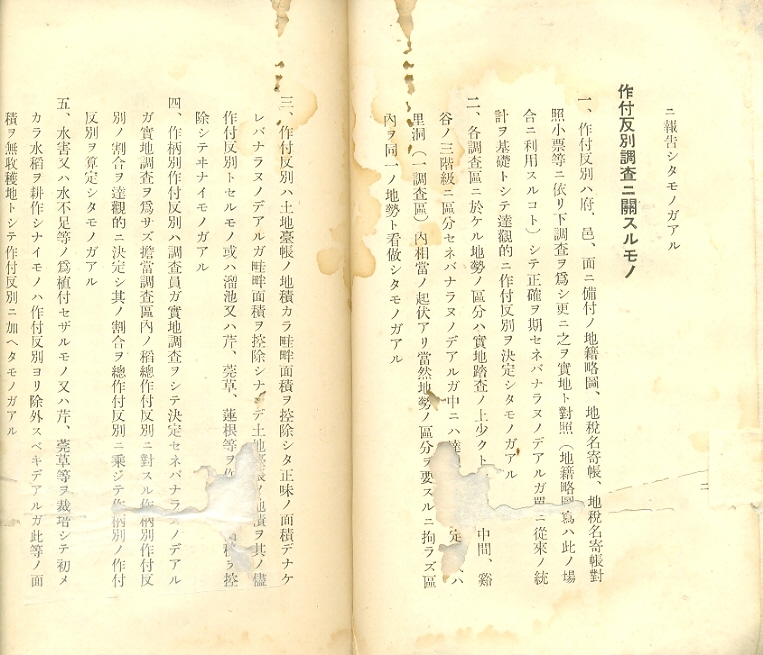 ニ報告シタモノガアル
作付反別調査ニ關スルモノ
一、作付反別ハ府、邑、面ニ備付ノ地籍略圖、地稅名寄帳、地稅名寄帳對
照小票等ニ依リ下調査ヲ爲シ更ニ之ヲ實地ト對照(地籍略圖寫ハ此ノ場
合ニ利用スルコト)シテ正確ヲ期セネバナラヌノデアルガ單ニ從來ノ統
計ヲ基礎トシテ達觀的ニ作付反別ヲ決定シタモノガアル
二、各調査區ニ於ケル地勢ノ區分ハ實地踏査ノ上少クト 中間、谿
谷ノ三階級ニ區分セネバナラヌノデアルガ中ニハ 定 ハ
里洞(一調査區)內相當ノ起伏アリ當然地勢ノ區分ヲ要スルニ拘ラズ區
內ヲ同一ノ地勢ト看做シタモノガアル
三、作付反別ハ土地臺帳ノ地積カラ畦畔面積ヲ控除シタ正味ノ面積デナケ
レバナラヌノデアルガ畦畔面積ヲ控除シナ デ土地臺帳ノ地積ヲ其ノ儘
作付反別トセルモノ或ハ溜池又ハ芹、莞草、蓮根等ヲ作 積ヲ控
除シテヰナイモノガアル
四、作柄別作付反別ハ調査員ガ實地調査ヲシテ決定セネバナラヌノデアル
ガ實地調査ヲ爲サズ擔當調査區內ノ稻總作付反別ニ對スル作柄別作付反
別ノ割合ヲ達觀的ニ決定シ其ノ割合ヲ總作付反別ニ乘ジテ作柄別ノ作付
反別ヲ算定シタモノガアル
五、水害又ハ水不足等ノ爲植付セザルモノ又ハ芹、莞草等ヲ栽培シテ初メ
カラ水稻ヲ耕作シナイモノハ作付反別ヨリ除外スベキデアルガ此等ノ面
積ヲ無收穫地トシテ作付反別ニ加ヘタモノガアル
二